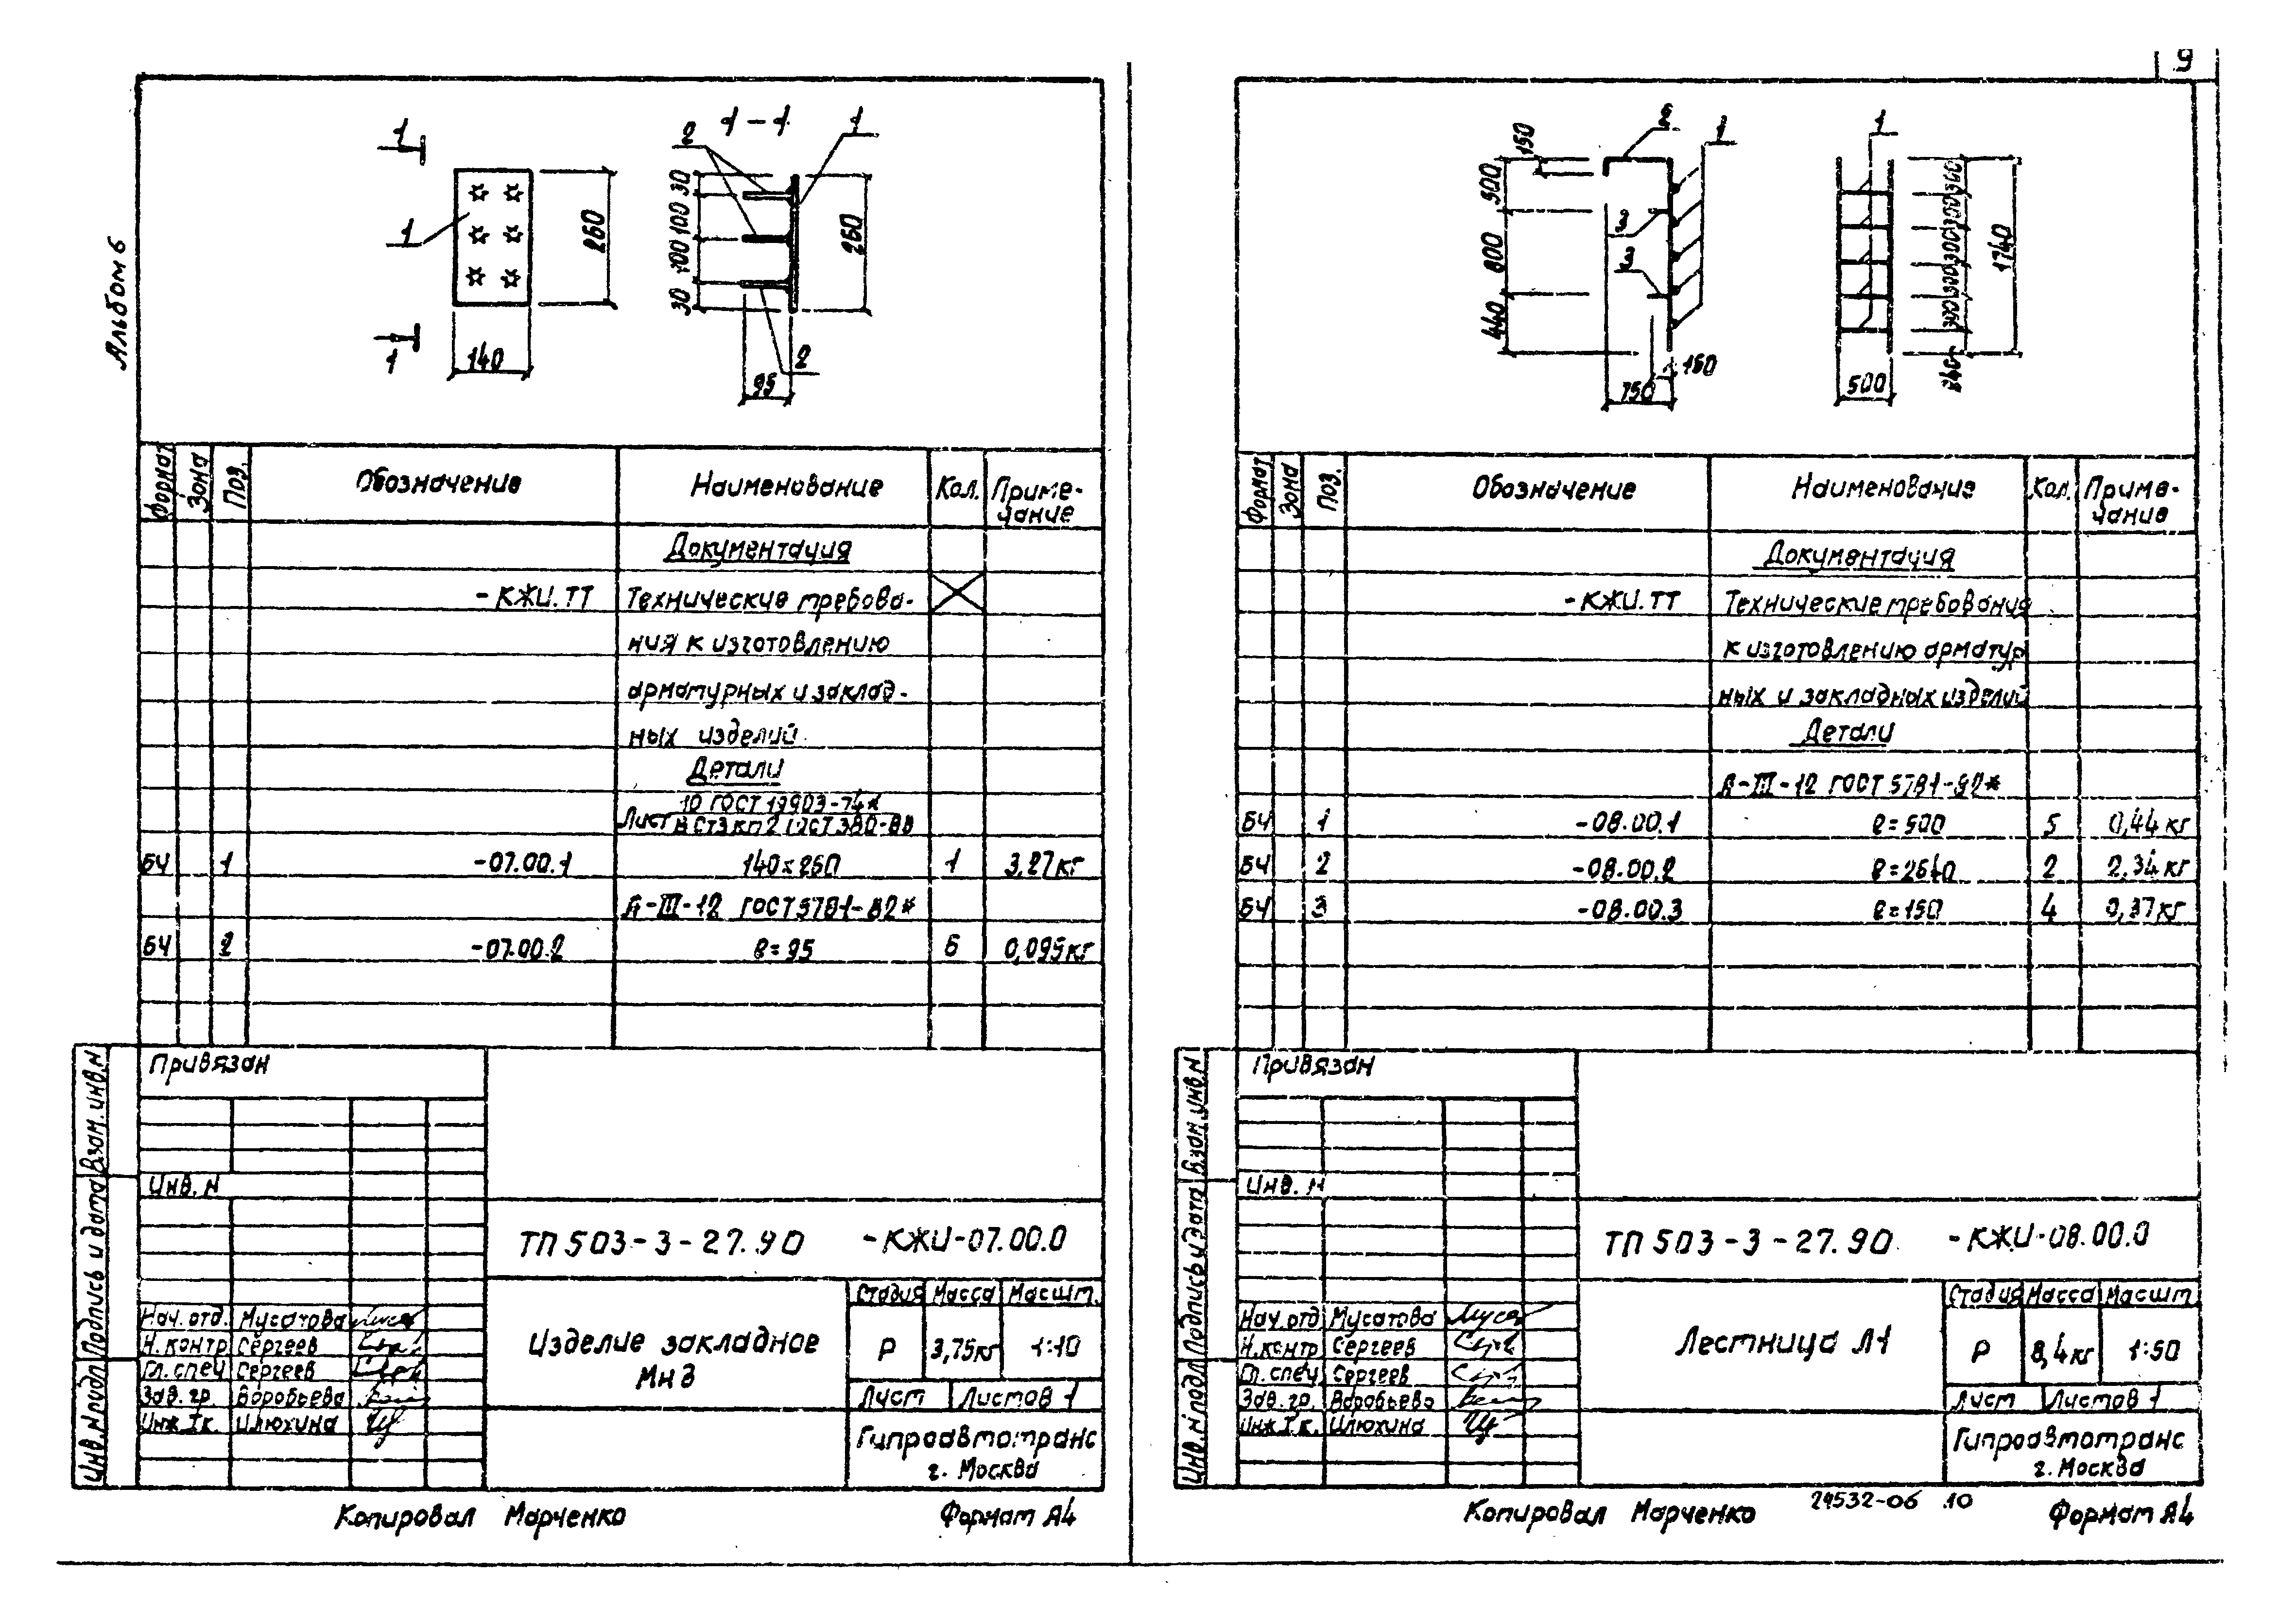 9
Альбом 6
1
1
1
260
140
1-1
2
1
30
100
100
30
260
95
2
Формат Зона Поз. Обозначение Наименование Кол. Приме-
чание
Документация
-КЖИ.ТТ Технические требова-
ния к изготовлению
арматурных и заклад-
ных изделий
Детали
10 ГОСТ 19903-74*
Лист В СТ3 КП 2 ГОСТ 380-88
БЧ 1 -07.00.1 140×260 1 3,27кг
А-III-12 ГОСТ 5781-82*
БЧ 2 -07.00.2 ℓ=95 6 0,095кг
Привязан
Инв. N
ТП 503-3-27.90 -КЖИ-07.00.0
Нач. отд. Мусатова
Н. контр Сергеев
Гл. спец Сергеев
Зав. гр. Воробьева
Инж. I к. Илюхина
Изделие закладное
Стадия Масса Масшт.
Р 3,75кг 1:10
Лист Листов 1
Гипроавтотранс
г. Москва
Взам. инв. N
Подпись и дата
Инв. N подл
Копировал Марченко Формат А4
150
500
800
440
2
1
3
3
150
750
1
300
300
300
240
1740
500
Формат Зона Поз. Обозначение Наименование Кол. Приме-
чание
Документация
-КЖИ.ТТ Технические требования
к изготовлению арматур
ных и закладных изделий
Детали
А-III-12 ГОСТ 5781-82*
БЧ 1 -08.00.1 ℓ=500 5 0,44кг
БЧ 2 -08.00.2 ℓ=2640 2 2,34кг
БЧ 3 -08.00.3 ℓ=150 4 0,37кг
Привязан
Инв. N
ТП 503-3-27.90 -КЖИ-08.00.0
Нач. отд Мусатова
Н. контр Сергеев
Гл. спец Сергеев
Зав. гр. Воробьева
Инж. I к. Илюхина
Лестница Л1
Стадия Масса Масшт.
Р 8,4кг 1:50
Лист Листов 1
Гипроавтотранс
г. Москва
Взам. инв. N
Подпись и дата
Инв. N подл
Копировал Марченко 24532-06 10 Формат А4